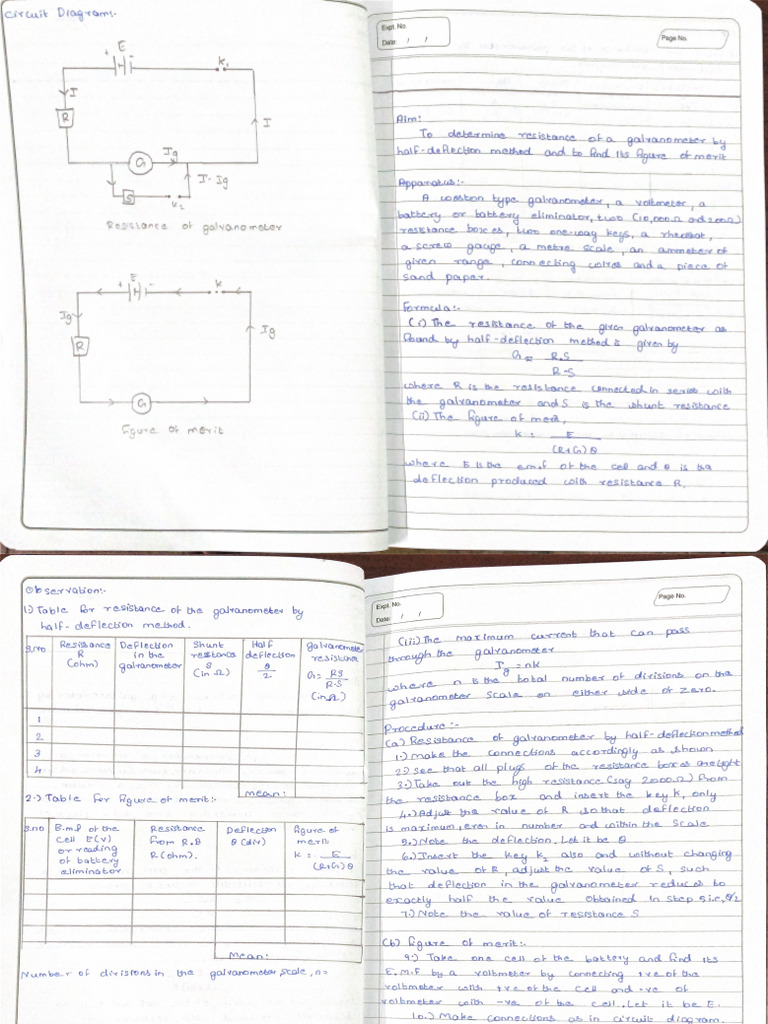 Circuit Diagram:-
E
+ -
K1
I
R
I
G
Ig
I-Ig
S
K2
Resistance of galvanometer
E
+ -
K
Ig
R
Ig
G
figure of merit
Expt. No.
Date: / /
Page No.
Aim:
To determine resistance of a galvanometer by
half-deflection method and to find its figure of merit
Apparatus:-
A weston type galvanometer, a voltmeter, a
battery or battery eliminator, two (10,000Ω and 200Ω)
resistance boxes, two one-way keys, a rheostat,
a screw gauge, a metre scale, an ammeter of
given range, connecting wires and a piece of
sand paper.
Formula:-
(i) The resistance of the given galvanometer as
found by half-deflection method is given by
G = R.S
R-S
where R is the resistance connected in series with
the galvanometer and S is the shunt resistance
(ii) The figure of merit,
k = E
(R+G)θ
where E is the e.m.f of the cell and θ is the
deflection produced with resistance R.
Observation:-
1) Table for resistance of the galvanometer by
half-deflection method.
S.no Resistance R (ohm) Deflection in the galvanometer Shunt resistance S (in Ω) Half deflection θ/2 galvanometer resistance G = RS/R-S (in Ω)
1
2
3
4
mean:
2.) Table for figure of merit:-
S.no E.m.f of the cell E(v) or reading of battery eliminator Resistance from R.B R(ohm). Deflection θ (div) figure of merit k = E/(R+G)θ
mean:
Number of divisions in the galvanometer scale, n=
Expt. No.
Date: / /
Page No.
(iii) The maximum current that can pass
through the galvanometer
Ig = nk
where n is the total number of divisions on the
galvanometer scale on either side of zero.
Procedure:-
(a) Resistance of galvanometer by half-deflection method
1.) make the connections accordingly as shown
2.) see that all plugs of the resistance boxes are tight
3.) Take out the high resistance (say 2000Ω) from
the resistance box and insert the key K, only
4.) Adjust the value of R so that deflection
is maximum, even in number and within the scale
5.) Note the deflection. Let it be θ
6.) Insert the key k2 also and without changing
the value of R, adjust the value of S, such
that deflection in the galvanometer reduces to
exactly half the value obtained in step 5 i.e, θ/2
7.) Note the value of resistance S
(b) figure of merit:-
9.) Take one cell of the battery and find its
E.M.F by a voltmeter by connecting +ve of the
voltmeter with +ve of the cell and -ve of
voltmeter with -ve of the cell. Let it be E.
10.) Make connections as in circuit diagram.